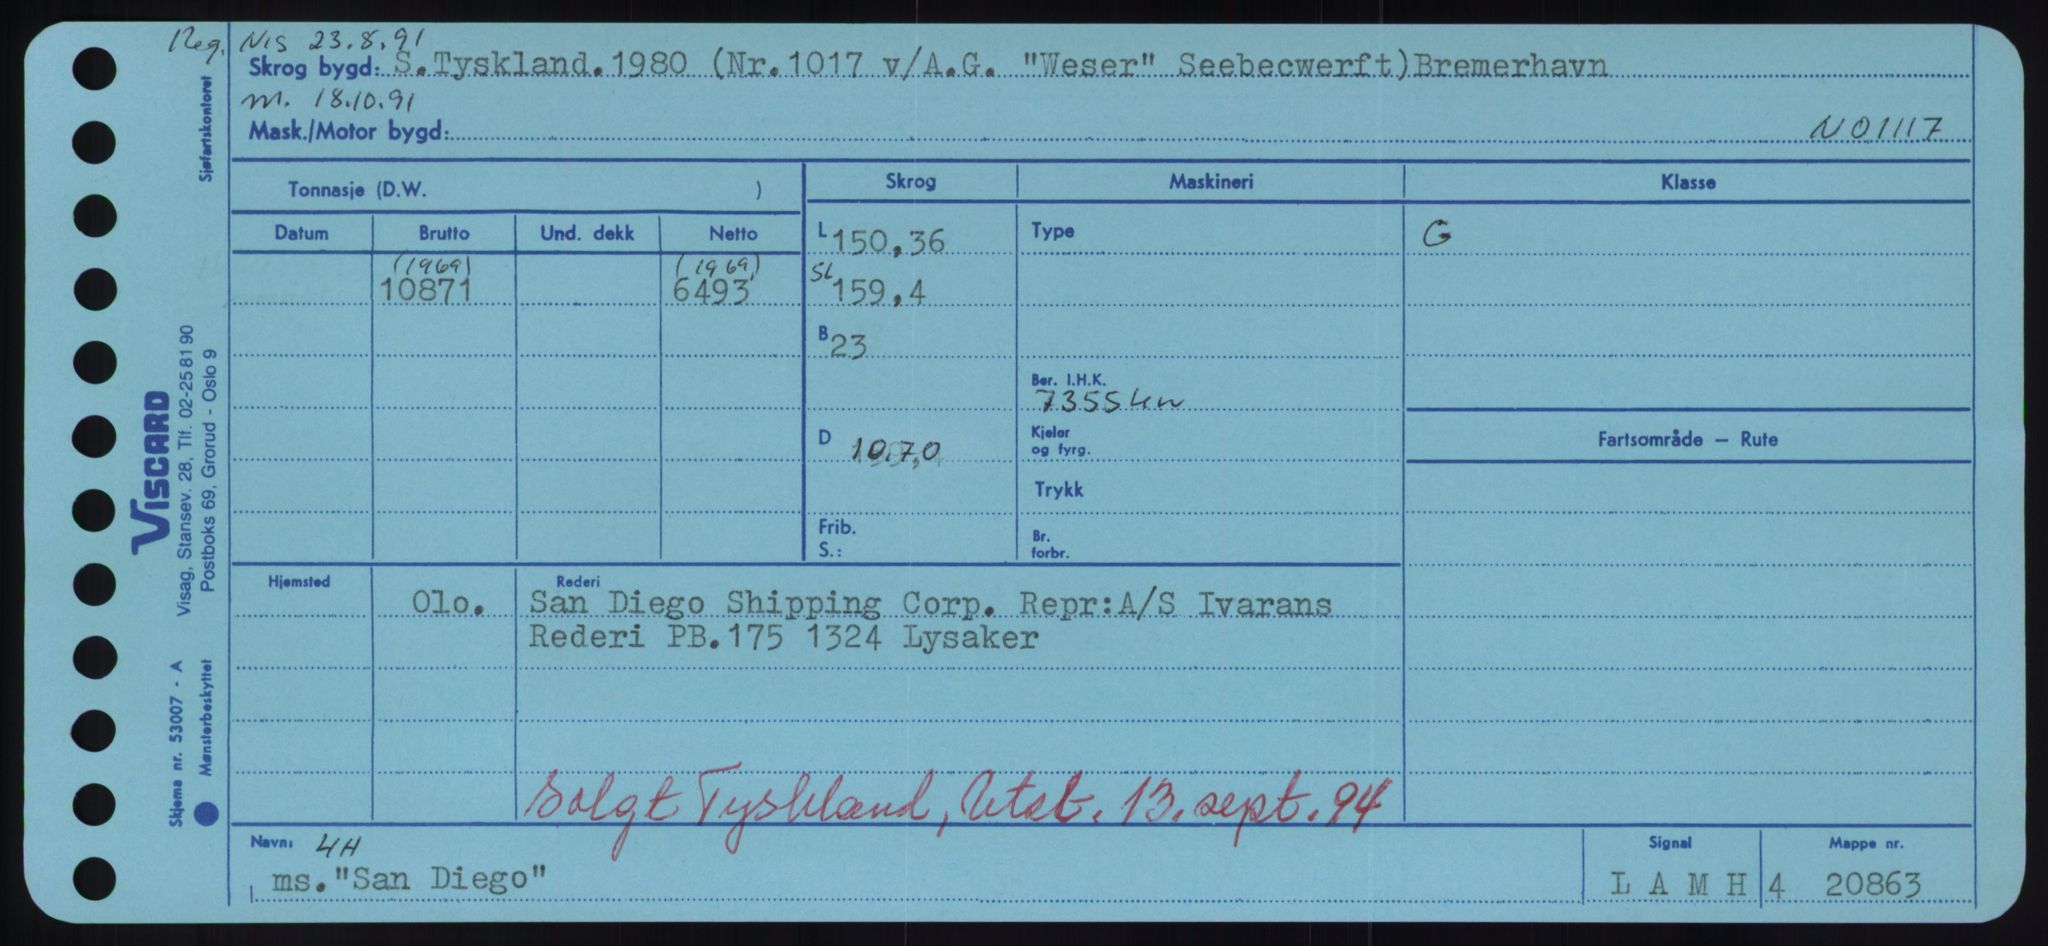 Reg. NIS 23.8.91
Skrog bygd: S.Tyskland.1980 (Nr.1017 v/A.G. "Weser" Seebecwerft)Bremerhavn
m. 18.10.91
Mask./Motor bygd:
N01117
Sjøfartskontoret
Tonnasje (D.W. )
Skrog Maskineri Klasse
Datum Brutto Und. dekk Netto
L 150,36
Type
G
(1969) (1969)
10871 6493
SL 159,4
B 23
Ber. I.H.K.
7355 kw
D 10.70
Kjeler
og fyrg.
Fartsområde – Rute
Trykk
Frib.
S.:
Br.
forbr.
Hjemsted Rederi
Olo. San Diego Shipping Corp. Repr:A/S Ivarans
Rederi PB.175 1324 Lysaker
Solgt Tyskland, Utsl. 13. sept. 94
Navn: 4H
ms."San Diego"
Signal Mappe nr.
L A M H 4 20863
VISCARD
Visag, Stansev. 28, Tlf. 02-25 81 90
Postboks 69, Grorud - Oslo 9
Skjema nr. 53007 - A
Mønsterbeskyttet